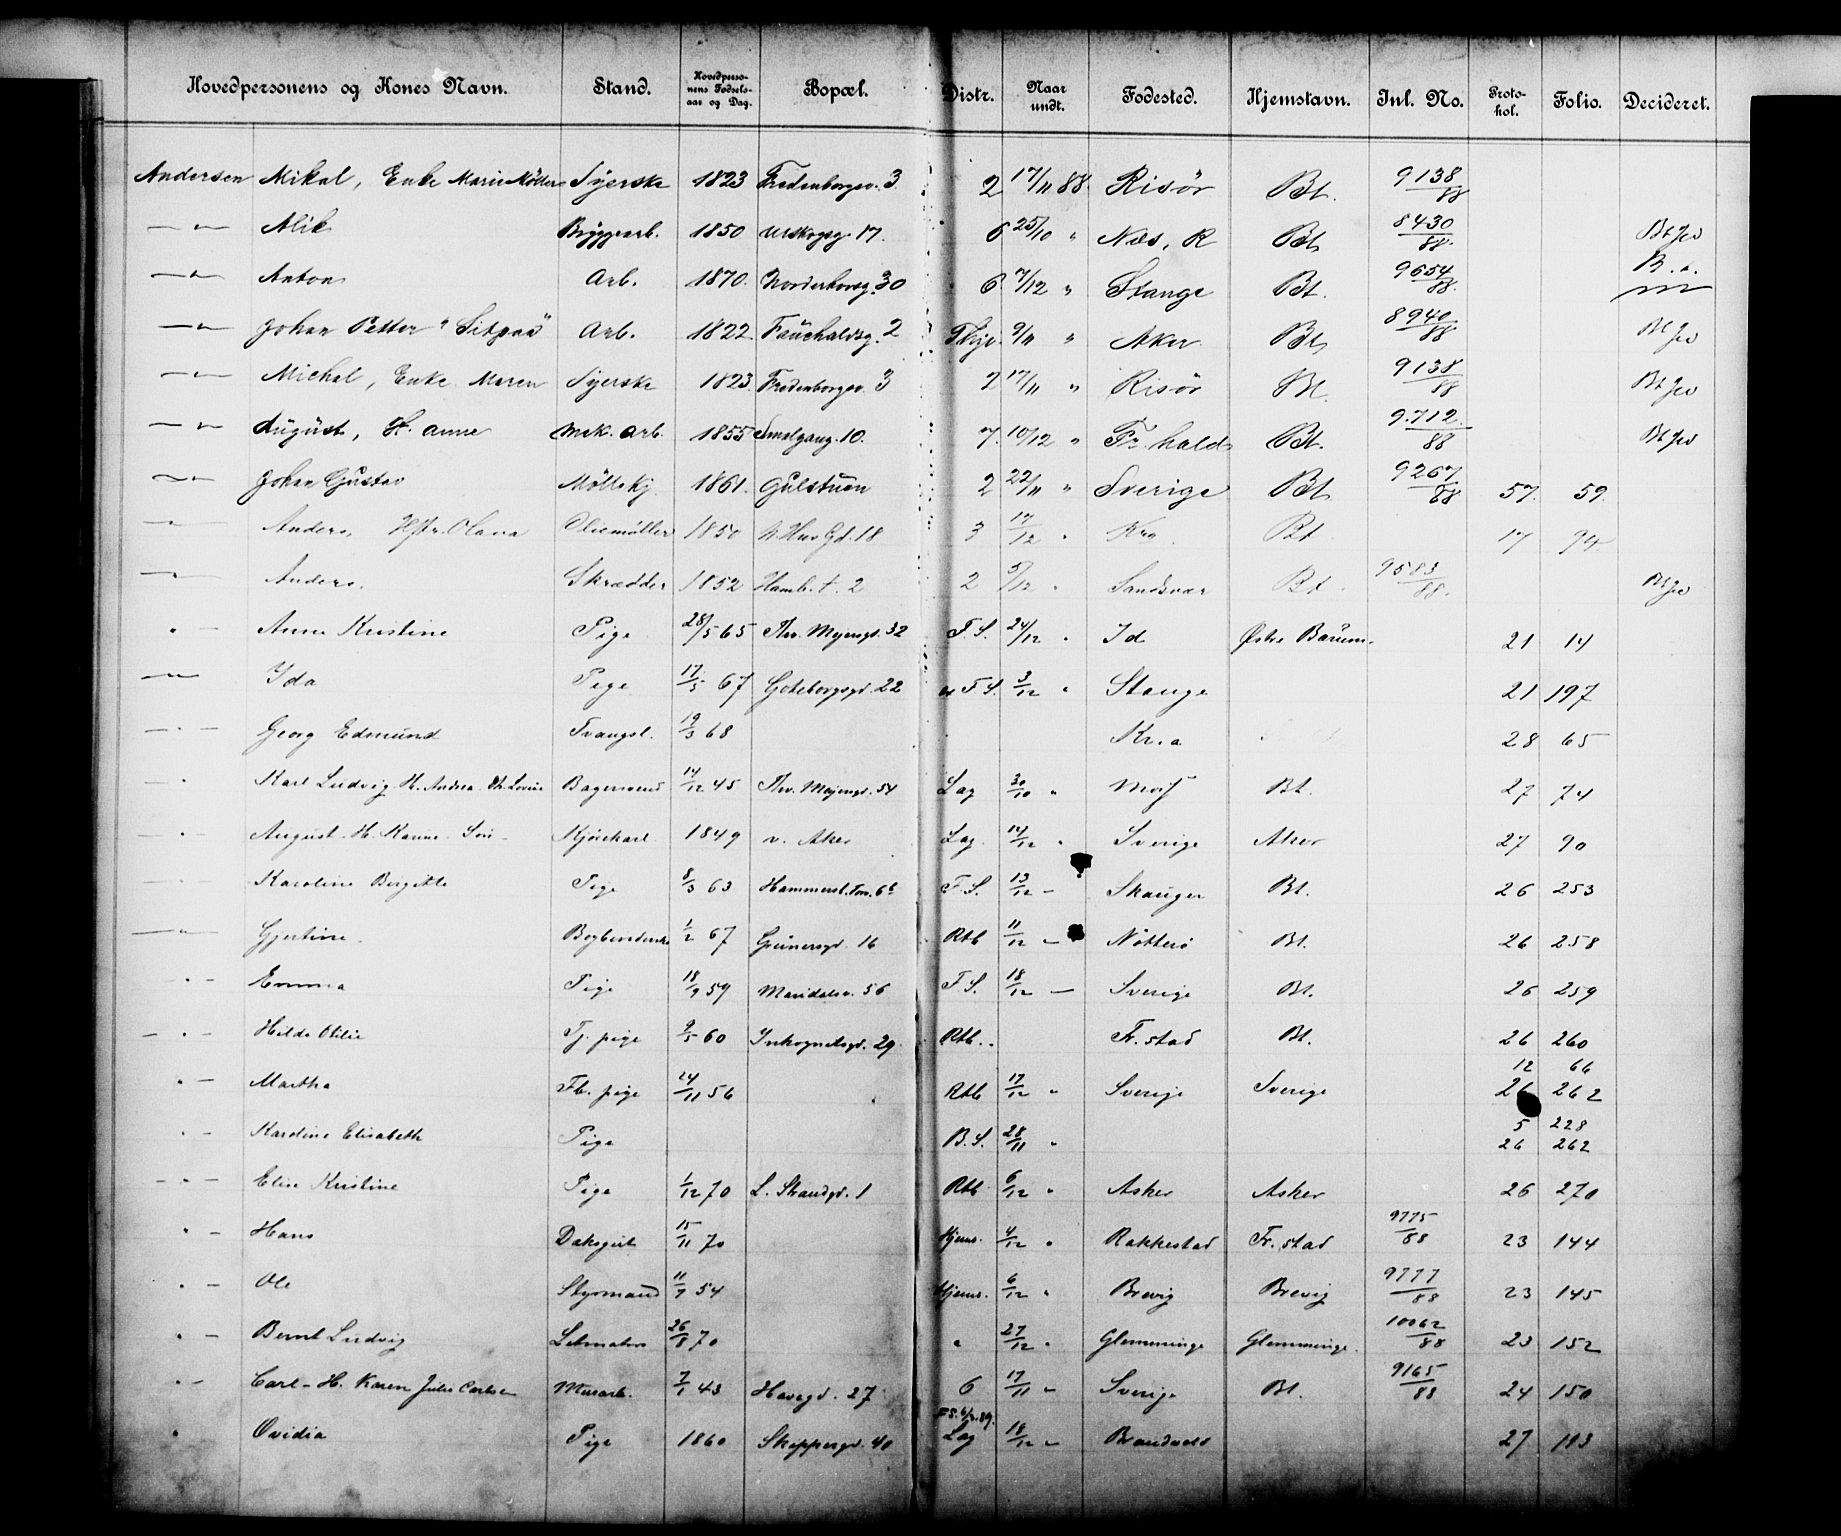 Hovedpersonens og Kones Navn. Stand. Hovedpersonens Fødselsaar og Dag. Bopæl. Distr. Naar undt. Fødested. Hjemstavn. Inl. No. Protokol. Folio. Decideret.
Andersen Mikal, Enke Marie Møller Syerske 1823 Fredensborgv. 3 2 17/11 88 Risör Bt. 9138/88
— " — Alik Bryggearb. 1850 Urskogsg. 17. 6 25/10 " Næs, R Bt 8430/88
— " — Anton Arb. 1870. 30 6. 7/12 " Stange Bt. 9654/88
— " — Johan Petter Arb. 1822 Fauchaldsg. 2 9/11 " Aker Bt 8940/88
— " — Michal, Enke Maren Syerske 1823 Fredensborgv. 3 2 17/11 " Risör Bt. 9138/88
— " — August, H. Anne Mek. Arb. 1855 Smalgang. 10. 7. 10/12 " Fr. hald Bt. 9712/88
— " — Johan Gustav 1861. Gulstuen 2 22/11 " Sverige Bt 9267/88 57 59.
— " — Anders, Hstr. Olava Oliemøller 1850 18 3 17/12 " Kra Bt 17 94
— " — Anders. Skrædder 1852 Hamb. t. 2 2 5/12 " Sandsvær Bt 9583/88.
" — Anne Kristine Pige 28/5 65 Thv. Myersgd. 32 F. S. 24/12 " Id Østre Bærum 21 14
— " — Ida Pige 17/5 67 Goteborgsgd. 22 F S. 3/12 " Stange 21 197
— " — Georg Edmund Tvangsl. 19/3 68 Kr.a 28 65
— " Karl Ludvig H. Andrea Bagersvend 14/12 45 Thv. Majersgd. 54 Lag 30/10 " Moss Bt. 27 74
— " August H. Karine Kjørekarl 1849 v. Aker Lag 14/12 " Sverige Aker 27 90
— " — Karoline Birgitte Pige 8/3 63 F. S. 13/12 — Skauger Bt. 26 253
— " — Gjertine Bogbinderske 1/2 67 Grünersgd. 16 Rtb 11/12 — Nötterö Bt. 26 258
" — Emma Pige 18/9 59 Maridalsv. 56 F. S. 18/12 — Sverige Bt. 26 259
— " — Hilda Otilie Tj. pige 9/5 60 Inkognitogd. 29 Rtb. Fr. stad Bt. 26 260
12 66
" — Martha Fb. pige 24/11 56 Rtb 17/12 " Sverige Sverige 26 262
5 228
" — Karoline Elisabeth Pige B. S. 28/11 " 26 262
— " — Elise Kristine Pige 1/12 70 L. Strandgd. 1 Rtb 6/12 " Asker Asker 26 270
" — Hans Daksgut 15/11 70 Hjems. 4/12 " Rakkestad Fr. stad 9775/88 23 144
" — Ole Styrmand 11/9 54 Hjems. 6/12 " Brevig Brevig 9777/88 23 145
" — Bernt Ludvig Letmatros 26/8 70 " 27/12 " Glemminge Glemminge 10062/88 23 152
" — Carl – H. Karen Julie Carlsen Murarb. 7/1 43 Havegd. 27 6 17/11 " Sverige Bt. 9165/88 24 150
" Ovidia Pige 1860 Skippergd. 40 Lag 18/12 — Brandvold 27 113